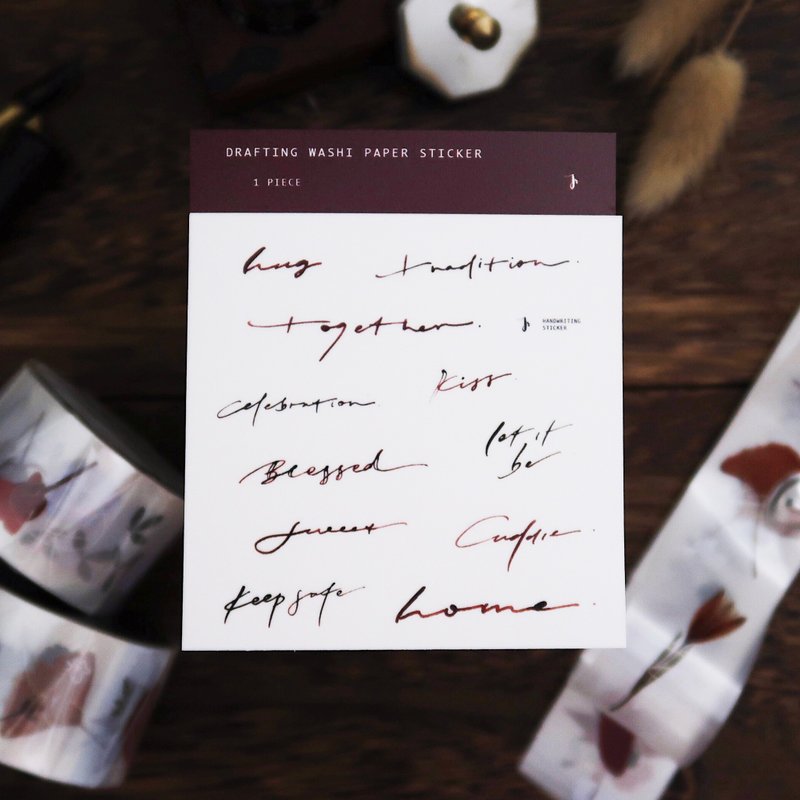 DRAFTING WASHI PAPER STICKER
1 PIECE
hug
tradition.
together.
HANDWRITING
STICKER
Kiss.
celebration
let it
be
Blessed
sweet
Cuddle.
Keep safe
home.